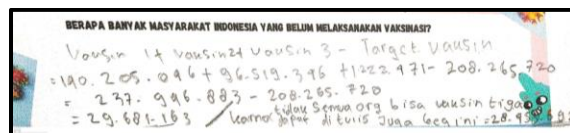 BERAPA BANYAK MASYARAKAT INDONESIA YANG BELUM MELAKSANAKAN VAKSINASI?
Vaksin 1 + vaksin 2 + vaksin 3 - Target vaksin
= 190.205.096 + 96.519.396 + 1222 471 - 208.265.720
= 237.996.883 - 208.265.720
= 29.681.163 / karna tidak semua org bisa vaksin tiga
dapat ditulis juga begini =